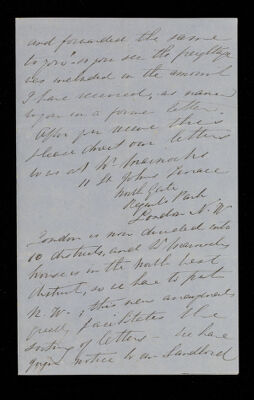 and forwarded the same
to you so you see the freightage
was included in the amount
I have received, as named
to you in a former letter.
After you receive this
please direct our letters
to us at Wm
11 St Johns Terrace
North Gate
Regents Park
London N. W.
London is now divided into
10 districts, and Wm
house is in the north west
district, so we have to put
N. W.; this new arrangement
greatly facilitates the
sorting of letters – We have
given notice to our Landlord